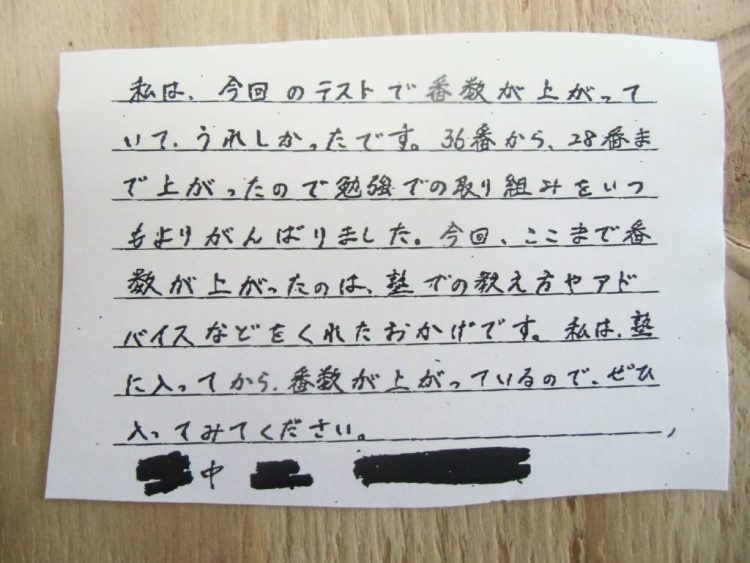 私は、今回のテストで番数が上がって
いて、うれしかったです。36番から、28番ま
で上がったので勉強での取り組みをいつ
もよりがんばりました。今回、ここまで番
数が上がったのは、塾での教え方やアド
バイスなどをくれたおかげです。私は、塾
に入ってから、番数が上がっているので、ぜひ
入ってみてください。
中